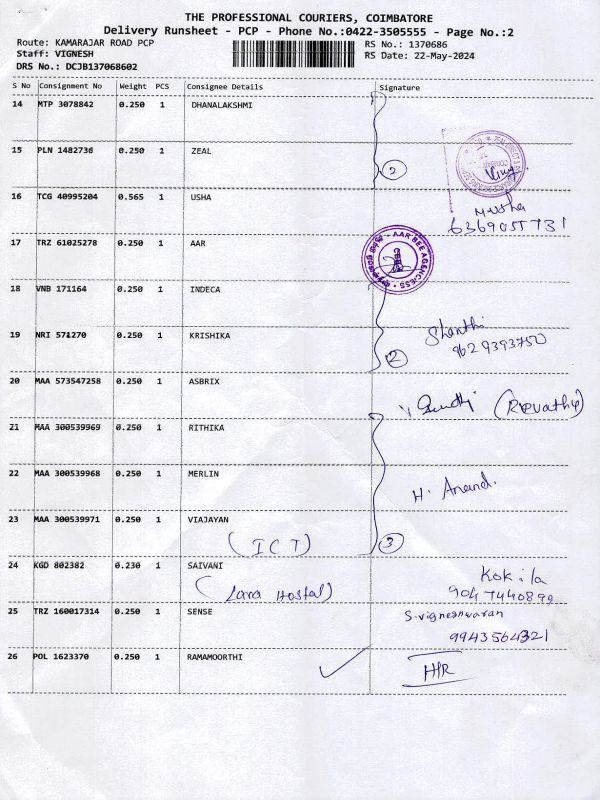 THE PROFESSIONAL COURIERS, COIMBATORE
Delivery Runsheet - PCP - Phone No.:0422-3505555 - Page No.:2
Route: KAMARAJAR ROAD PCP RS No.: 1370686
Staff: VIGNESH RS Date: 22-May-2024
DRS No.: DCJB137068602
S No Consignment No Weight PCS Consignee Details Signature
14 MTP 3078842 0.250 1 DHANALAKSHMI
15 PLN 1482736 0.250 1 ZEAL 2
16 TCG 40995204 0.565 1 USHA
6369055731
17 TRZ 61025278 0.250 1 AAR AAR BEE AGENCIESS
18 VNB 171164 0.250 1 INDECA
19 NRI 571270 0.250 1 KRISHIKA 2 Shanthi
9629393750
20 MAA 573547258 0.250 1 ASBRIX (Revathy)
21 MAA 300539969 0.250 1 RITHIKA
22 MAA 300539968 0.250 1 MERLIN H. Anand.
23 MAA 300539971 0.250 1 VIAJAYAN
(ICT) 3
24 KGD 802382 0.230 1 SAIVANI Kokila
(Lara Hostal) 9047440899
25 TRZ 160017314 0.250 1 SENSE S.vigneshwaran
9943564321
26 POL 1623370 0.250 1 RAMAMOORTHI HR